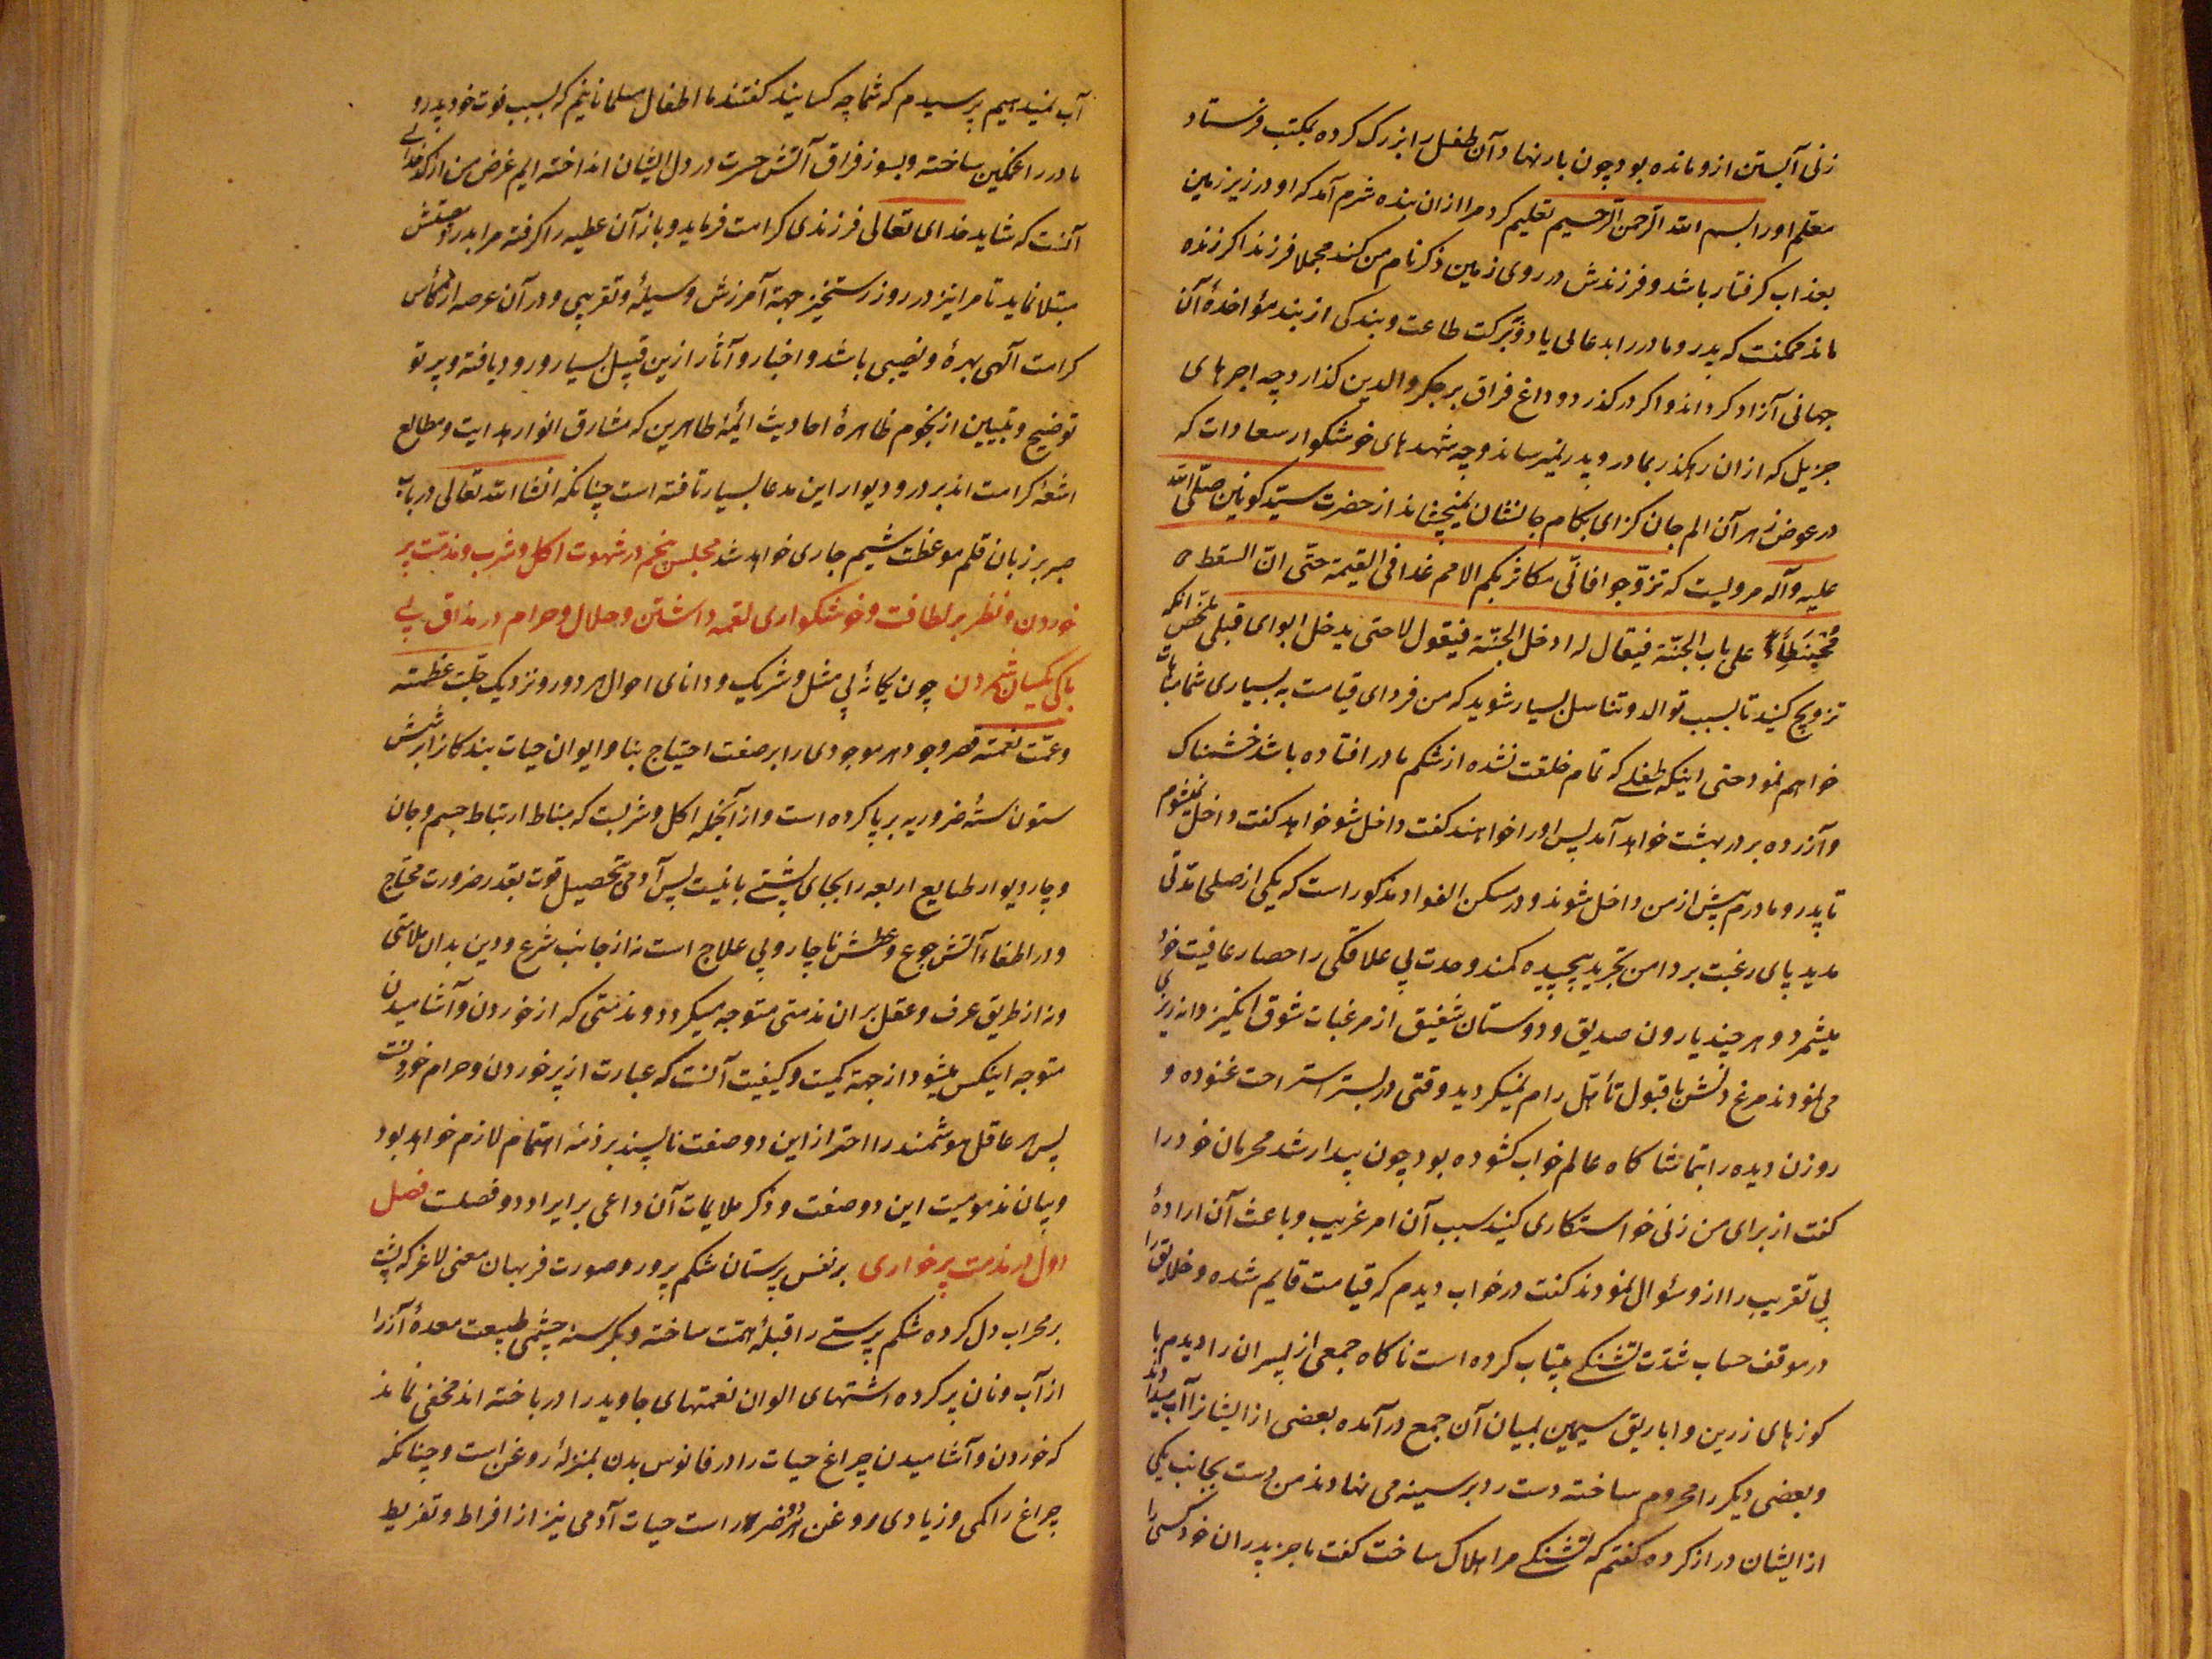 زنی آبستن ازو مانده بود چون بار نهاد آن طفل را بزرک کرده بمکتب فرستاد
معلم او را بسم الله الرحمن الرحیم تعلیم کرد مرا ازان بنده شرم آمد که او در زیر زمین
بعذاب کرفتار باشد و فرزندش در روی زمین ذکر نام من کند مجملا فرزند اکر زنده
ماند ممکنست که پدر و مادر را بدعائی یاد و ببرکت طاعت و بندکی از بند مؤاخذهٔ آن
جهانی آزاد کرداند و اکر درکذرد و داغ فراق بر جکر والدین کذارد چه اجرهای
جزیل که ازان رهکذر بمادر و پدر نمیرساند و چه شهدهای خوشکوار سعادات که
در عوض زهر آن الم جان کزای بکام جانشان نمیچشاند از حضرت سید کونین صلی الله
علیه و آله مرویست که تزوجوا فانی مکاثر بکم الامم غدا فی القیمة حتی ان السقط
محبنطئا علی باب الجنة فیقال له ادخل الجنة فیقول لا حتی یدخل ابوای قبلی ملخص آنکه
تزویج کنید تا بسبب توالد و تناسل بسیار شوید که من فردای قیامت به بسیاری شما مباهات
خواهم نمود حتی اینکه طفلے که تمام خلقت نشده از شکم مادر افتاده باشد خشمناک
و آزرده بر در بهشت خواهد آمد پس او را خواهند کفت داخل شو خواهد کفت داخل نمیشوم
تا پدر و مادرم پیش از من داخل شوند و در مسکن الفواد مذکور است که یکی از صلحا مدتی
مدید پای رغبت بر دامن تجرید پیچیده کمند وحدت بی علاقکی را حصار عافیت خود
میشمرد و هر چند یارون صدیق و دوستان شفیق از مرغبات شوق انکیز دانه ریزی
می نمودند مرغ دلش با قبول تأهل رام نمیکردید وقتی در بستر استراحت غنوده و
روزن دیده را بتماشاکاه عالم خواب کشوده بود چون بیدار شد محرمان خود را
کفت از برای من زنی خواستکاری کنید سبب آن امر غریب و باعث آن ارادهٔ
بی تقریب را ازو سؤال نمودند کفت در خواب دیدم که قیامت قایم شده و خلایق را
در موقف حساب شدت تشنکے بیتاب کرده است ناکاه جمعی از پسران را دیدم با
کوزهای زرین و اباریق سیمین بمیان آن جمع در آمده بعضی از ایشانرا آب میدادند
و بعضی دیکر را محروم ساخته دست رد بر سینه می نهادند من دست بجانب یکی
از ایشان دراز کرده کفتم که تشنکے مرا هلاک ساخت کفت ما جز پدران خود کسی را
آب نمیدهیم پرسیدم که شما چه کسانید کفتند ما اطفال مسلمانانیم که بسبب فوت خود پدر و
مادر را غمکین ساخته و بسوز فراق آتش حسرت در دل ایشان انداخته ایم غرض من از کدخدائی
آنست که شاید خدای تعالی فرزندی کرامت فرماید و باز آن عطیه را کرفته مرا بدرد
مبتلا نماید تا مرا نیز در روز رستخیز جهة آمرزش وسیلهٔ و تقریبی و در آن عرصه از کأس
کرامت آلهی بهرهٔ و نصیبی باشد و اخبار و آثار ازین قبیل بسیار ورود یافته و پرتو
توضیح و تبیین از نجوم ظاهرهٔ احادیث ائمهٔ طاهرین که مشارق انوار هدایت و مطالع
اشعهٔ کرامت اند بر در و دیوار این مدعا بسیار تافته است چنانکه انشا الله تعالی در باب
صبر بر زبان قلم موعظت شیم جاری خواهد شد مجلس پنجم در شهوت اکل و شرب و مذمت پر
خوردن و نظر بر لطافت و خوشکواری لقمه داشتن و حلال و حرام در مذاق بی
باکی یکسان شمردن چون یکانهٔ بی مثل و شریک و دانای احوال هر دور و نزدیک جلت عظمته
و عمت نعمته قصر وجود هر موجودی را بر صفت احتیاج بنا و ایوان حیات بندکانرا بر شش
ستون ستهٔ ضروریه برپا کرده است و از آنجمله اکل و شربست که مناط ارتباط جسم و جان
و چار دیوار طبایع اربعه را بجای پشتے بانیست پس آدمی در تحصیل قوت بقدر ضرورت محتاج
و در اطفاء آتش جوع و عطش ناچار و بی علاج است نه از جانب شرع و دین بدان ملامتی
و نه از طریق عرف و عقل بر ان مذمتی متوجه میکردد و مذمتی که از خوردن و آشامیدن
متوجه اینکس میشود از جهة کمیت و کیفیت آنست که عبارت از پر خوردن و حرام خوردنست
پس هر عاقل هوشمند را احتراز این دو صفت ناپسند بر ذمه اهتمام لازم خواهد بود
و بیان مذمومیت این دو صفت و ذکر ملایمات آن داعی بر ایراد دو فصلست فصل
اول در مذمت پر خواری بر نفس پرستان شکم پرور و صورت فربهان معنی لاغر که پشت
بر محراب دل کرده شکم پرستے را قبلهٔ همت ساخته و بکرسنه چشمی طبیعت معدهٔ آز را
از آب و نان پر کرده اشتهای الوان نعمتهای جاوید را در باخته اند مخفی نماند
که خوردن و آشامیدن چراغ حیات را در فانوس بدن بمنزلهٔ روغن است و چنانکه
چراغ را کمی و زیادی روغن هر دو ضرر است حیات آدمی نیز از افراط و تفریط